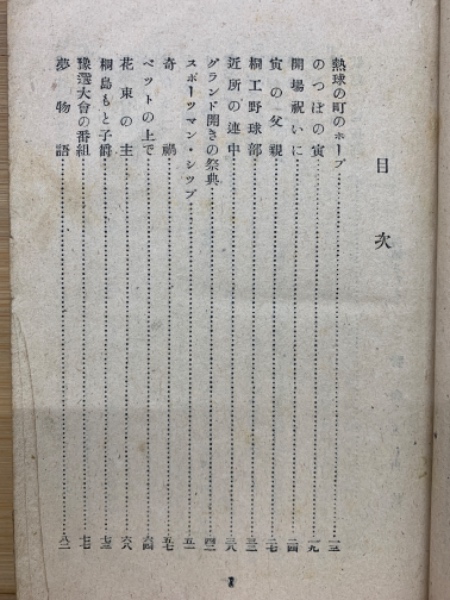 目次
熱球の町のホープ……一三
のつぽの寅……一九
開場祝いに……二四
寅の父親……二七
桐工野球部……三三
近所の連中……三八
グランド開きの祭典……四二
スポーツマン・シツプ……五一
奇禍……五七
ベツトの上で……六四
花束の主……六八
桐島もと子爵……七三
豫選大會の番組……七七
夢物語……八二
1